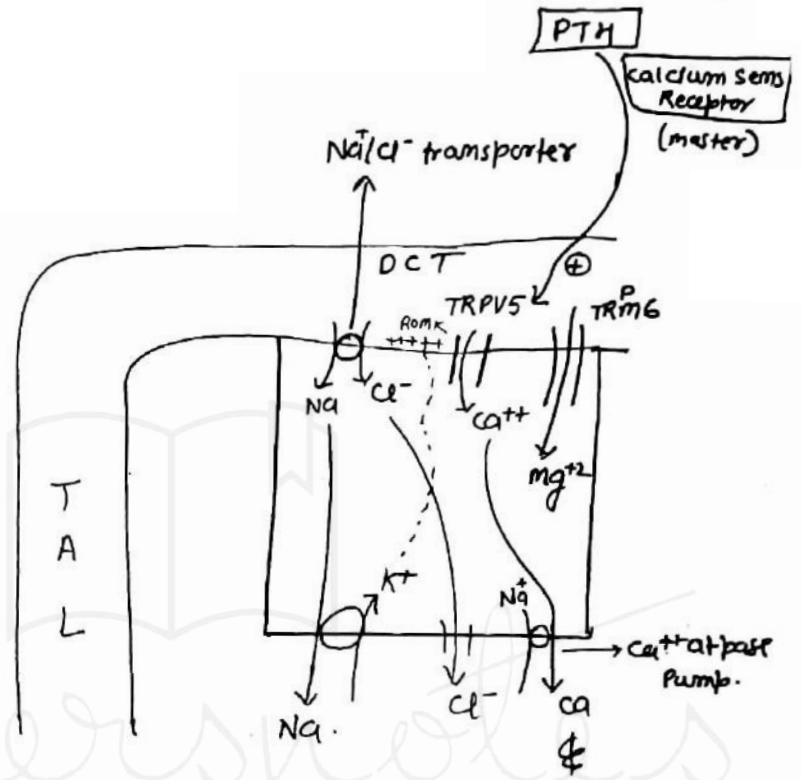 PTH
Calcium Sens
Receptor
(master)
Na+/Cl- transporter
DCT
+
ROMK
TRPV5
TRPM6
+++ ++
Na
Cl-
Ca++
Mg+2
T
A
L
K+
Na+
Ca++ atpase
Pump.
Na.
Cl-
Ca
ersnotes